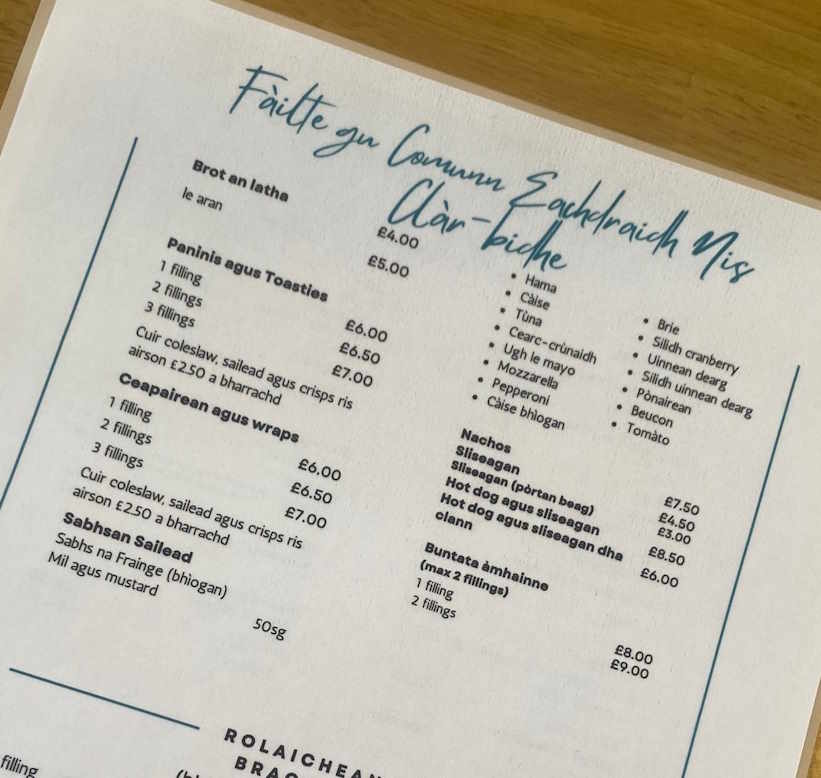 Fàilte gu Comunn Eachdraidh Nis
Clàr-bidhe
Brot an latha
£4.00
le aran
£5.00
Paninis agus Toasties
1 filling
£6.00
2 fillings
£6.50
3 fillings
£7.00
Cuir coleslaw, sailead agus crisps ris
airson £2.50 a bharrachd
Ceapairean agus wraps
1 filling
£6.00
2 fillings
£6.50
3 fillings
£7.00
Cuir coleslaw, sailead agus crisps ris
airson £2.50 a bharrachd
Sabhsan Sailead
Sabhs na Frainge (bhìogan)
Mil agus mustard
50sg
• Hama
• Càise
• Tùna
• Cearc-crùnaidh
• Ugh le mayo
• Mozzarella
• Pepperoni
• Càise bhìogan
• Brie
• Silidh cranberry
• Uinnean dearg
• Silidh uinnean dearg
• Pònairean
• Beucon
• Tomàto
Nachos
£7.50
Sliseagan
£4.50
Sliseagan (pòrtan beag)
£3.00
Hot dog agus sliseagan
£8.50
Hot dog agus sliseagan dha
clann
£6.00
Buntata àmhainne
(max 2 fillings)
1 filling
£8.00
2 fillings
£9.00
ROLAICHEAN
filling